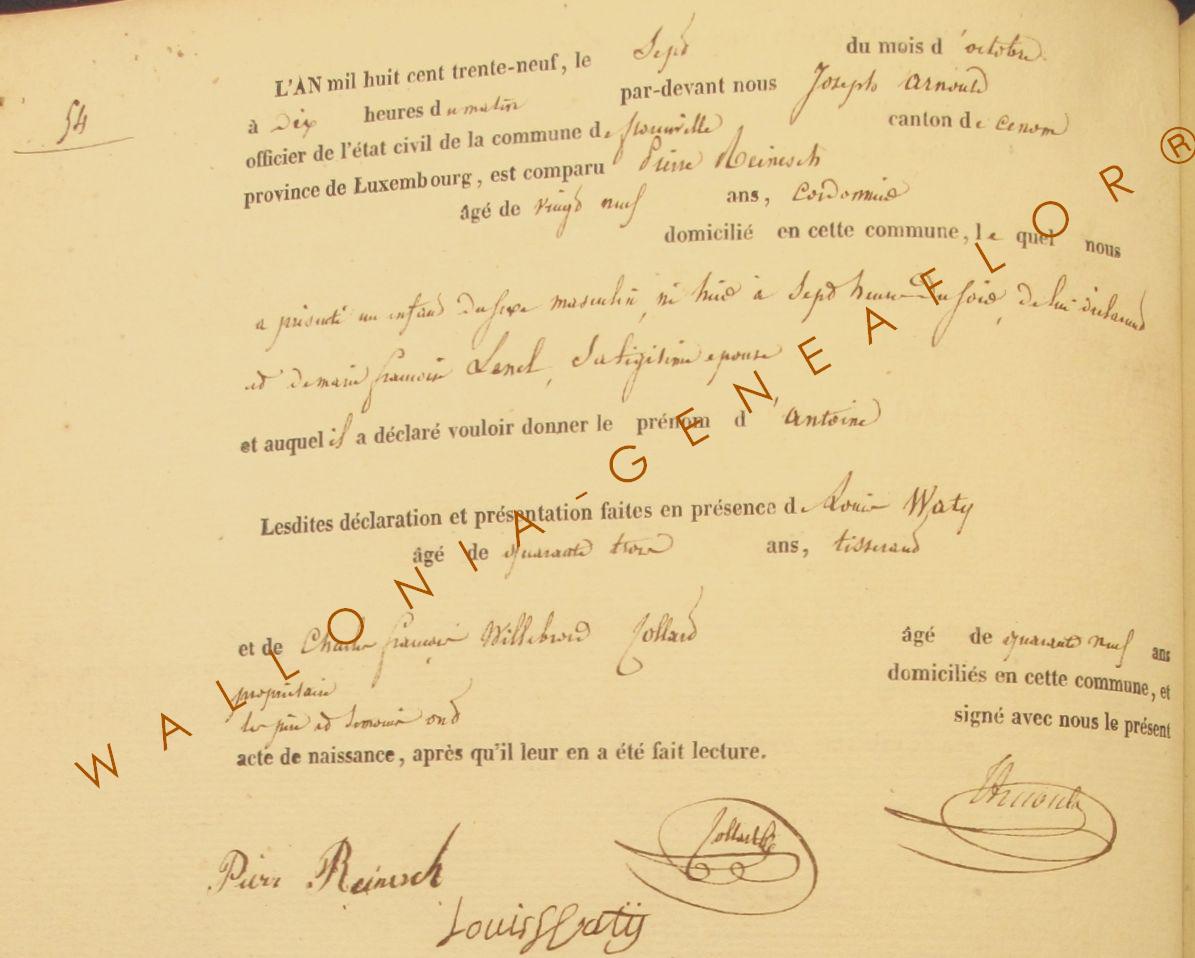 54
L'AN mil huit cent trente-neuf, le Sept du mois d'octobre
à dix heures du matin par-devant nous Joseph Arnould
officier de l'état civil de la commune de canton de
province de Luxembourg, est comparu Pierre Reinesch
âgé de vingt neuf ans, cordonnier
domicilié en cette commune, le quel nous
a présenté un enfant du sexe masculin, né hier à Sept heures du soir, de lui déclarant
et de marie françoise Lenel, Sa légitime epouse
et auquel il a déclaré vouloir donner le prénom d'antoine
Lesdites déclaration et présentation faites en présence de Louis Waty
âgé de quarante trois ans, tisserand
et de Charles françois Willebrord Collard âgé de quarante neuf ans
propriétaire domiciliés en cette commune, et
les père et temoins ont signé avec nous le présent
acte de naissance, après qu'il leur en a été fait lecture.
Arnould
Collard
Pierr Reinesch
Louis Watÿ
WALLONIA-GENEAFLOR®